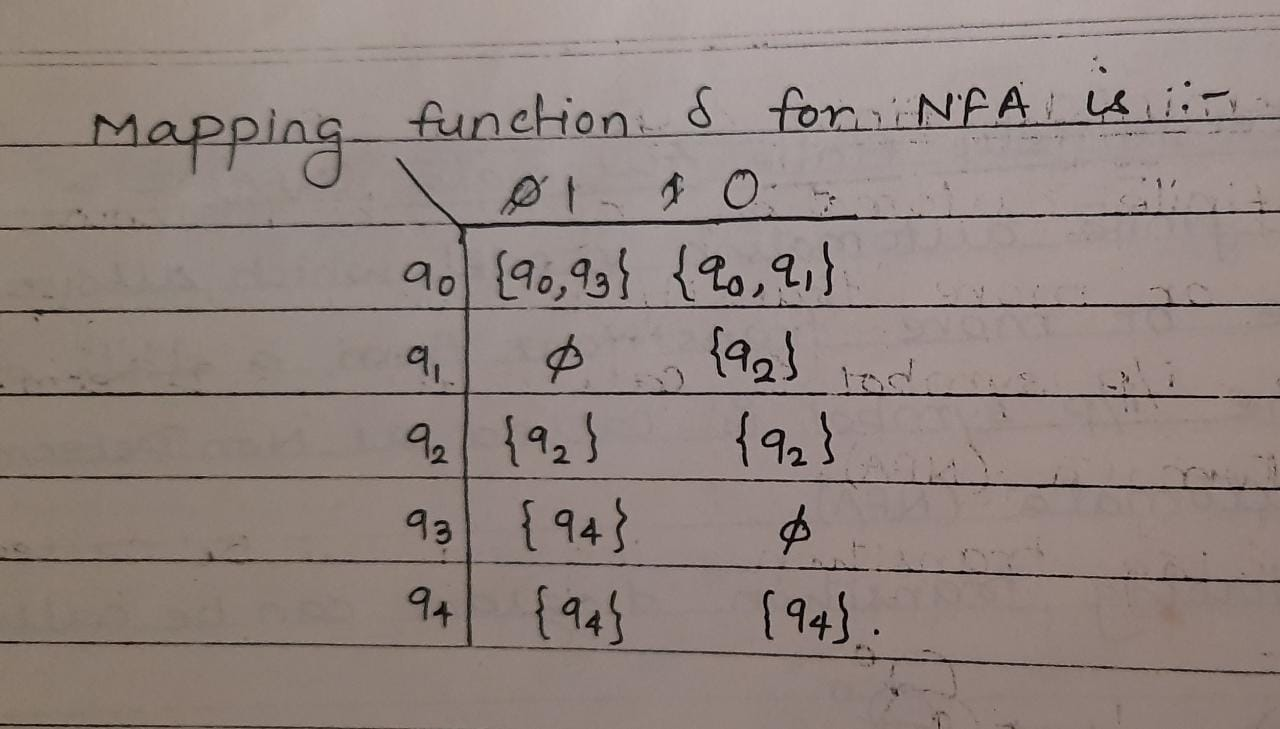 Mapping function δ for NFA is :-
1 0
q0 {q0, q3} {q0, q1}
q1 ϕ {q2}
q2 {q2} {q2}
q3 {q4} ϕ
q4 {q4} {q4}.